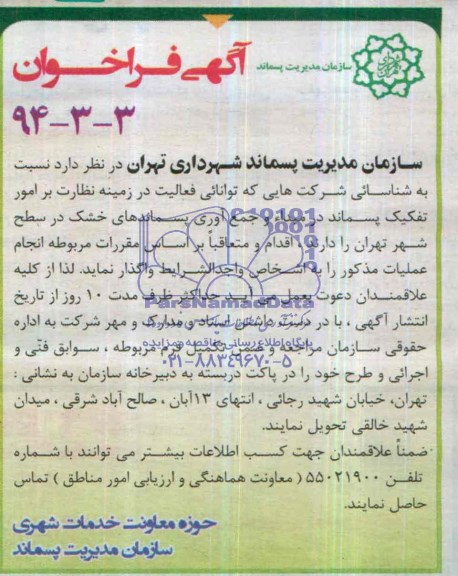 سازمان مدیریت پسماند
آگهی فراخوان
۹۴-۳-۳
سازمان مدیریت پسماند شهرداری تهران در نظر دارد نسبت
به شناسائی شرکت هایی که توانائی فعالیت در زمینه نظارت بر امور
تفکیک پسماند در مبداء و جمع آوری پسماندهای خشک در سطح
شهر تهران را دارند، اقدام و متعاقباً بر اساس مقررات مربوطه انجام
عملیات مذکور را به اشخاص واجدالشرایط واگذار نماید. لذا از کلیه
علاقمندان دعوت بعمل می آید حداکثر ظرف مدت ۱۰ روز از تاریخ
انتشار آگهی ، با در دست داشتن اسناد و مدارک و مهر شرکت به اداره
حقوقی سازمان مراجعه و ضمن تکمیل فرم مربوطه ، سوابق فنّی و
اجرائی و طرح خود را در پاکت دربسته به دبیرخانه سازمان به نشانی :
تهران، خیابان شهید رجائی ، انتهای ۱۳آبان ، صالح آباد شرقی ، میدان
شهید خالقی تحویل نمایند.
ضمناً علاقمندان جهت کسب اطلاعات بیشتر می توانند با شماره
تلفن ۵۵۰۲۱۹۰۰ ( معاونت هماهنگی و ارزیابی امور مناطق ) تماس
حاصل نمایند.
حوزه معاونت خدمات شهری
سازمان مدیریت پسماند
ParsNamadData
پایگاه اطلاع رسانی مناقصه و مزایده
۰۲۱-۸۸۳۴۹۶۷۰-۵